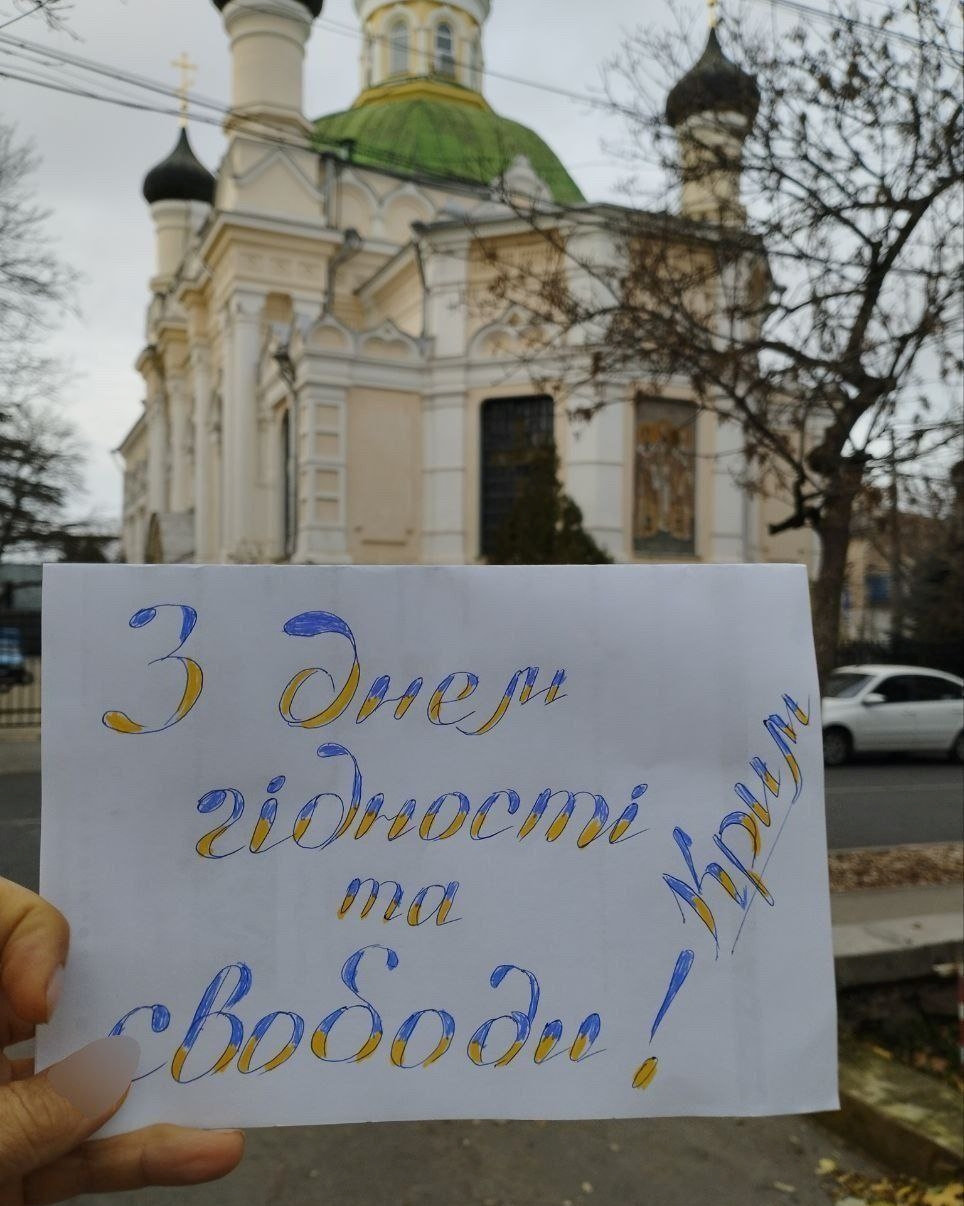 З днем
гідності
та
свободи!
Крим